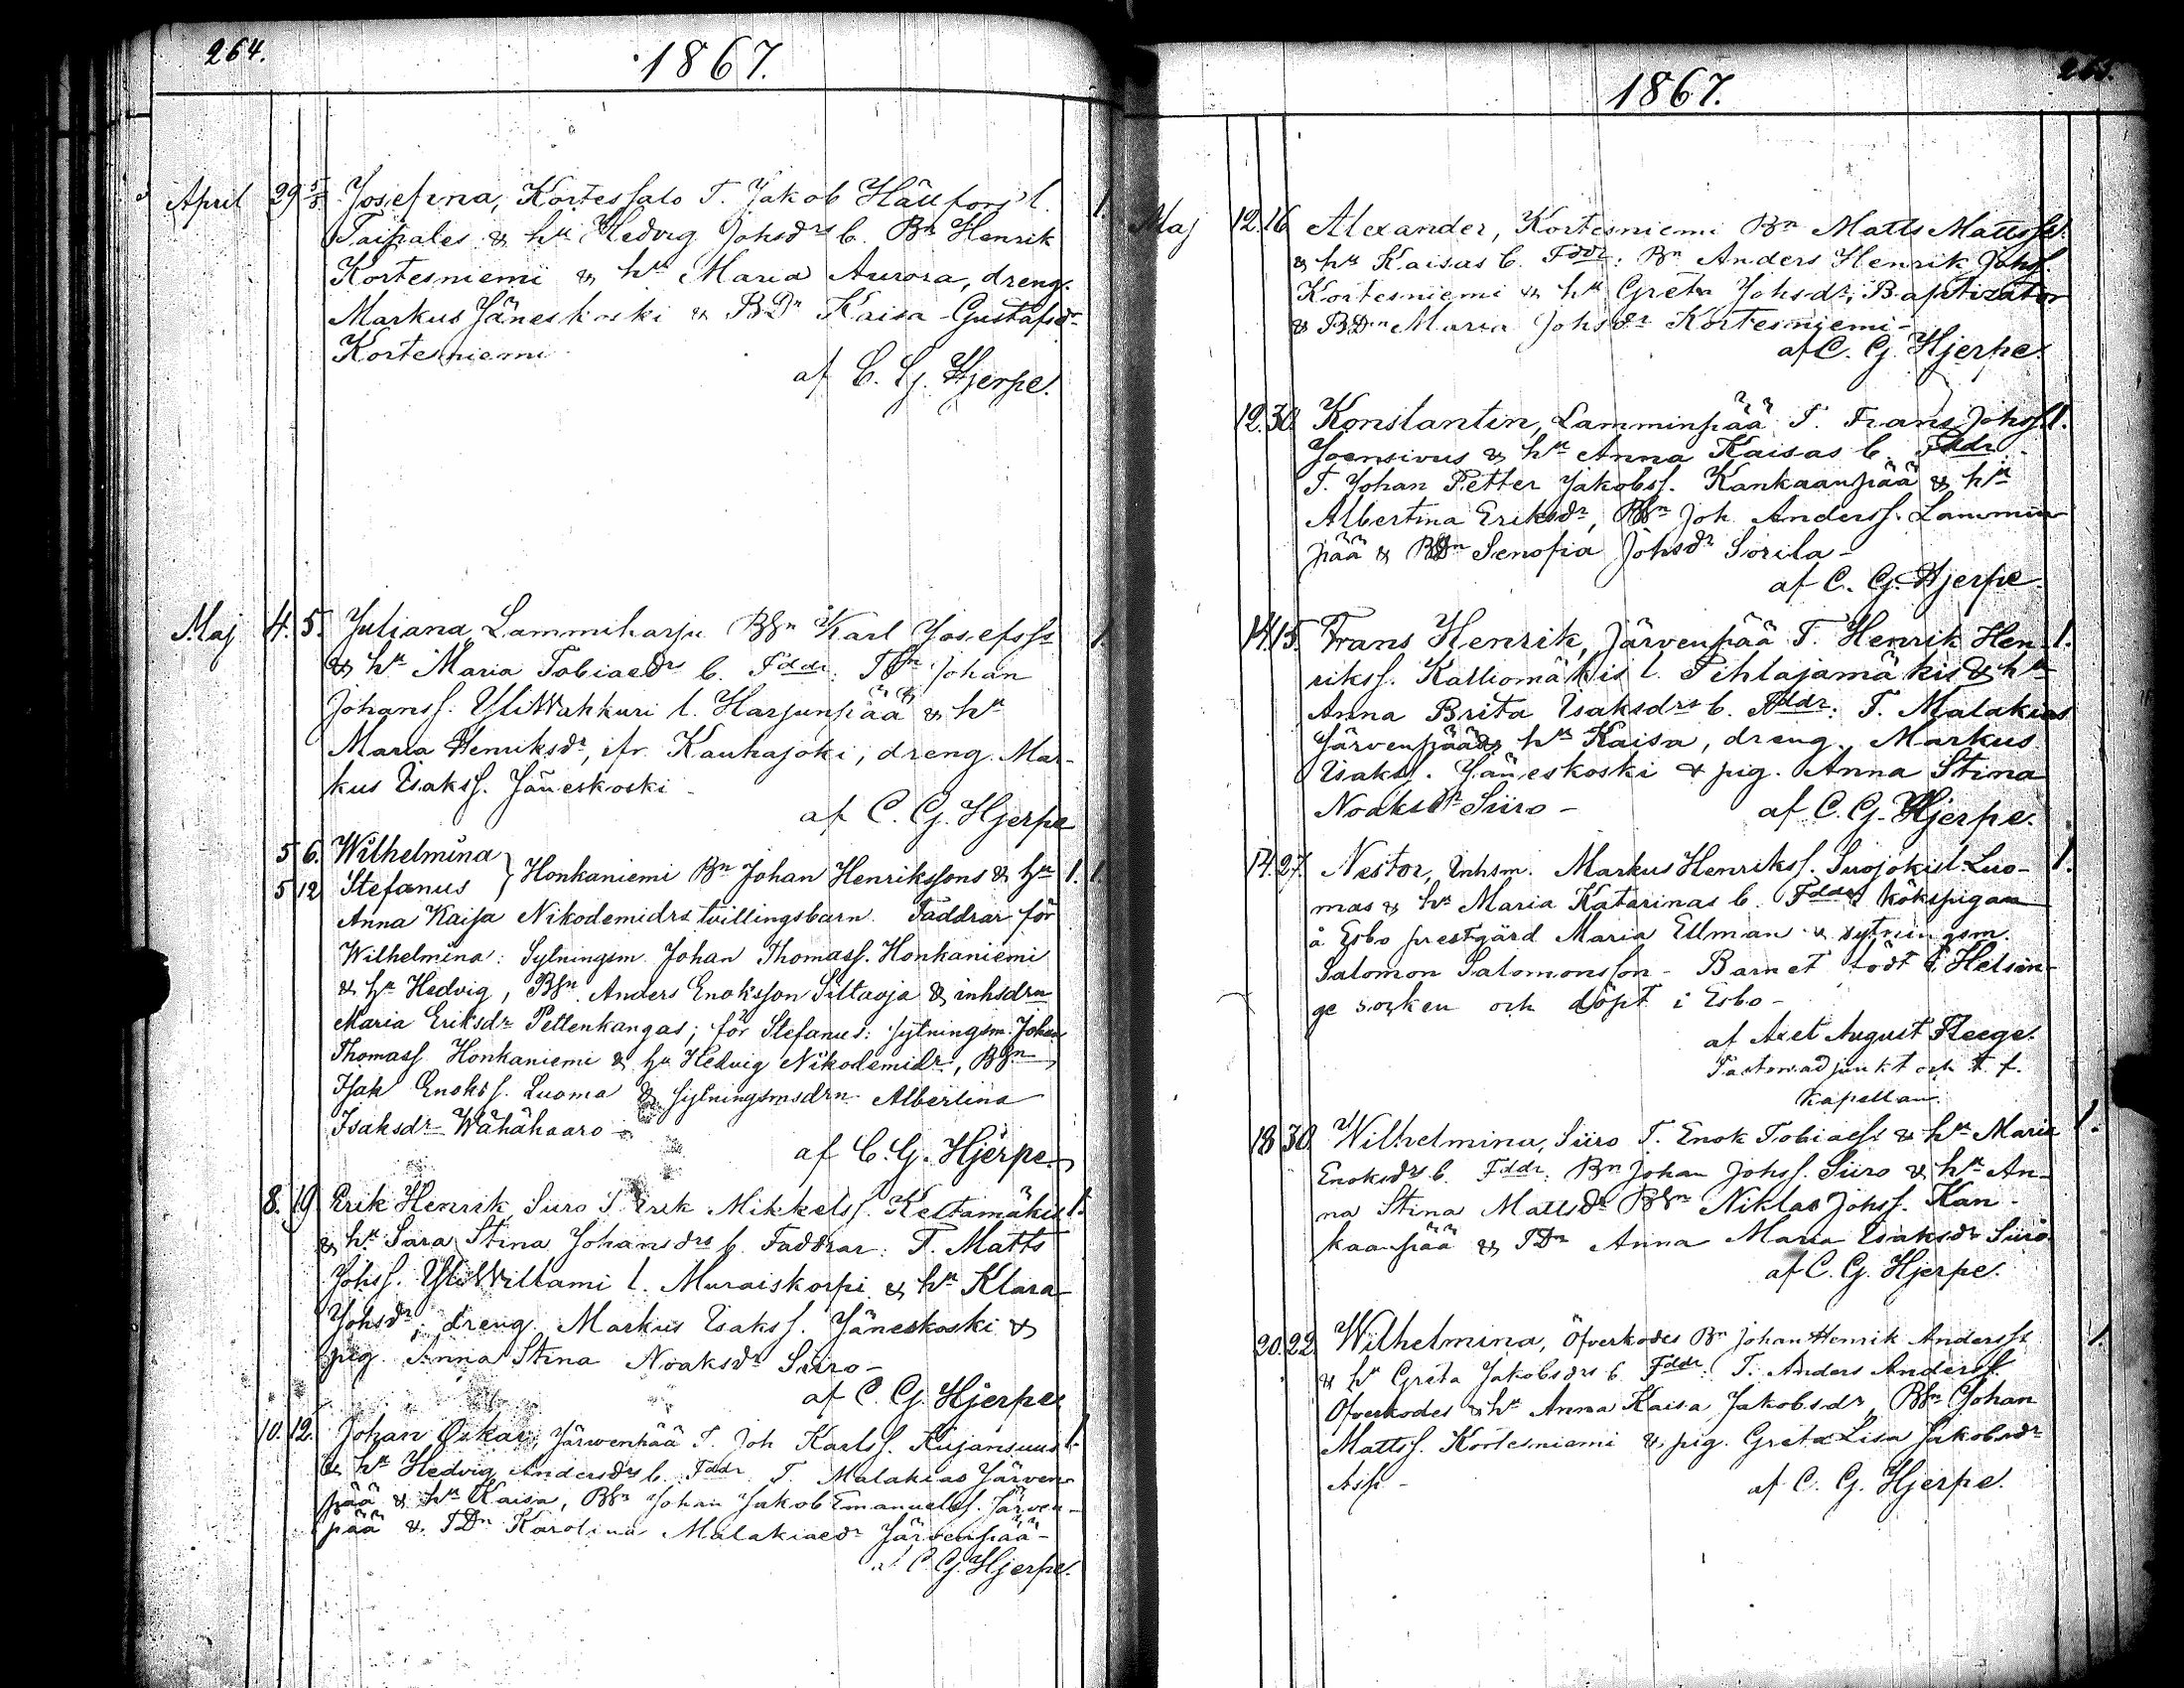 264.
1867.
April 29 5/5 Josefina, Kortessalo T. Jakob Hällfors l.
Taipales & hu Hedvig Johsdrs b. Bn Henrik
Kortesniemi & hu Maria Aurora, dreng.
Markus Jäneskoski & BDn Kaisa Gustafsdr
Kortesniemi
af C. G. Hjerpe.
1.
Maj 4. 5. Juliana, Lammiharju BSn Karl Josefss.
& hu Maria Tobiaedrs b. Fddr: TSn Johan
Johanss. YliWakkuri l. Harjunpää & hu
Maria Henriksdr, ifr. Kauhajoki, dreng. Mar-
kus Isakss. Jäneskoski -
af C. G. Hjerpe
1.
5 6. Wilhelmina
5 12 Stefanus } Honkaniemi Bn Johan Henrikssons & hu 1. 1.
Anna Kaisa Nikodemidrs tvillingsbarn. Faddrar för
Wilhelmina: Sytningsm. Johan Thomass. Honkaniemi
& hu Hedvig, BSn Anders Enoksson Siltaoja & inhsdrn
Maria Eriksdr Pettenkangas; för Stefanus: sytningsm. Johan
Thomass. Honkaniemi & hu Hedvig Nikodemidr, BSn
Isak Enokss. Luoma & sytningsmsdrn Albertina
Isaksdr Wähähaaro -
af C. G. Hjerpe.
8. 19 Erik Henrik, Siiro T. Erik Mikkelss. Keltamäkis 1.
& hu Sara Stina Johansdrs b. Faddrar: T. Matts
Johss. YliWillami l. Muraiskorpi & hu Klara
Johsdr; dreng. Markus Isakss. Jäneskoski &
pig. Anna Stina Noaksdr Siiro -
af C. G. Hjerpe
10. 12. Johan Oskar, Järwenpää T. Joh Karlss. Kujansuus 1.
& hu Hedvig Andersdrs b. Fddr T. Malakias Järven-
pää & hu Kaisa, BSn Johan Jakob Emanuelss. Järven-
pää & TDn Karolina Malakiaedr Järvenpää -
af C. G. Hjerpe.
265.
1867.
Maj 12. 16 Alexander, Kortesniemi Bn Matts Mattss.
& hu Kaisas b. Fddr: Bn Anders Henrik Johss.
Kortesniemi & hu Greta Johsdr, Baptizator
& BDn Maria Johsdr Kortesniemi -
af C. G. Hjerpe.
12. 30. Konstantin, Lamminpää T. Frans Johss. 1.
Joensivus & hu Anna Kaisas b. Fddr
T. Johan Petter Jakobss. Kankaanpää & hu
Albertina Eriksdr, BSn Joh. Anderss. Lammin-
pää & BDn Senofia Johsdr Sorila -
af C. G. Hjerpe.
14. 15. Frans Henrik, Järvenpää T. Henrik Hen- 1.
rikss. Kalliomäkis l. Pihlajamäkis & hu
Anna Brita Isaksdrs b. Fddr: T. Malakias
Järvenpää & hu Kaisa, dreng. Markus
Isakss. Jäneskoski & pig. Anna Stina
Noaksdr Siiro -
af C. G. Hjerpe.
14. 27. Nestor, Inhsm. Markus Henrikss. Suojokis l. Luo- 1.
mas & hu Maria Katarinas b. Fddr: kökspigan
å Esbo prestgård Maria Ellman & sytningsm.
Salomon Salomonsson - Barnet född i Helsin-
ge socken och döpt i Esbo -
af Axel August Fleege.
Pastorsadjunkt och t. f.
Kapellan.
18 30. Wilhelmina, Siiro T. Enok Tobiaess & hu Maria 1.
Enoksdrs b. Fddr: Bn Johan Johss. Siiro & hu An-
na Stina Mattsdr BSn Niklas Johss. Kan-
kaanpää & TDn Anna Maria Isaksdr Siiro.
af C. G. Hjerpe.
20. 22 Wilhelmina, Öfverkodes Bn Johan Henrik Anderss. 1.
& hu Greta Jakobsdrs b. Fddr: T. Anders Anderss.
Öfverkodes & hu Anna Kaisa Jakobsdr, BSn Johan
Mattss. Kortesniemi & pig. Greta Lisa Jakobsdr
Asp -
af C. G. Hjerpe.